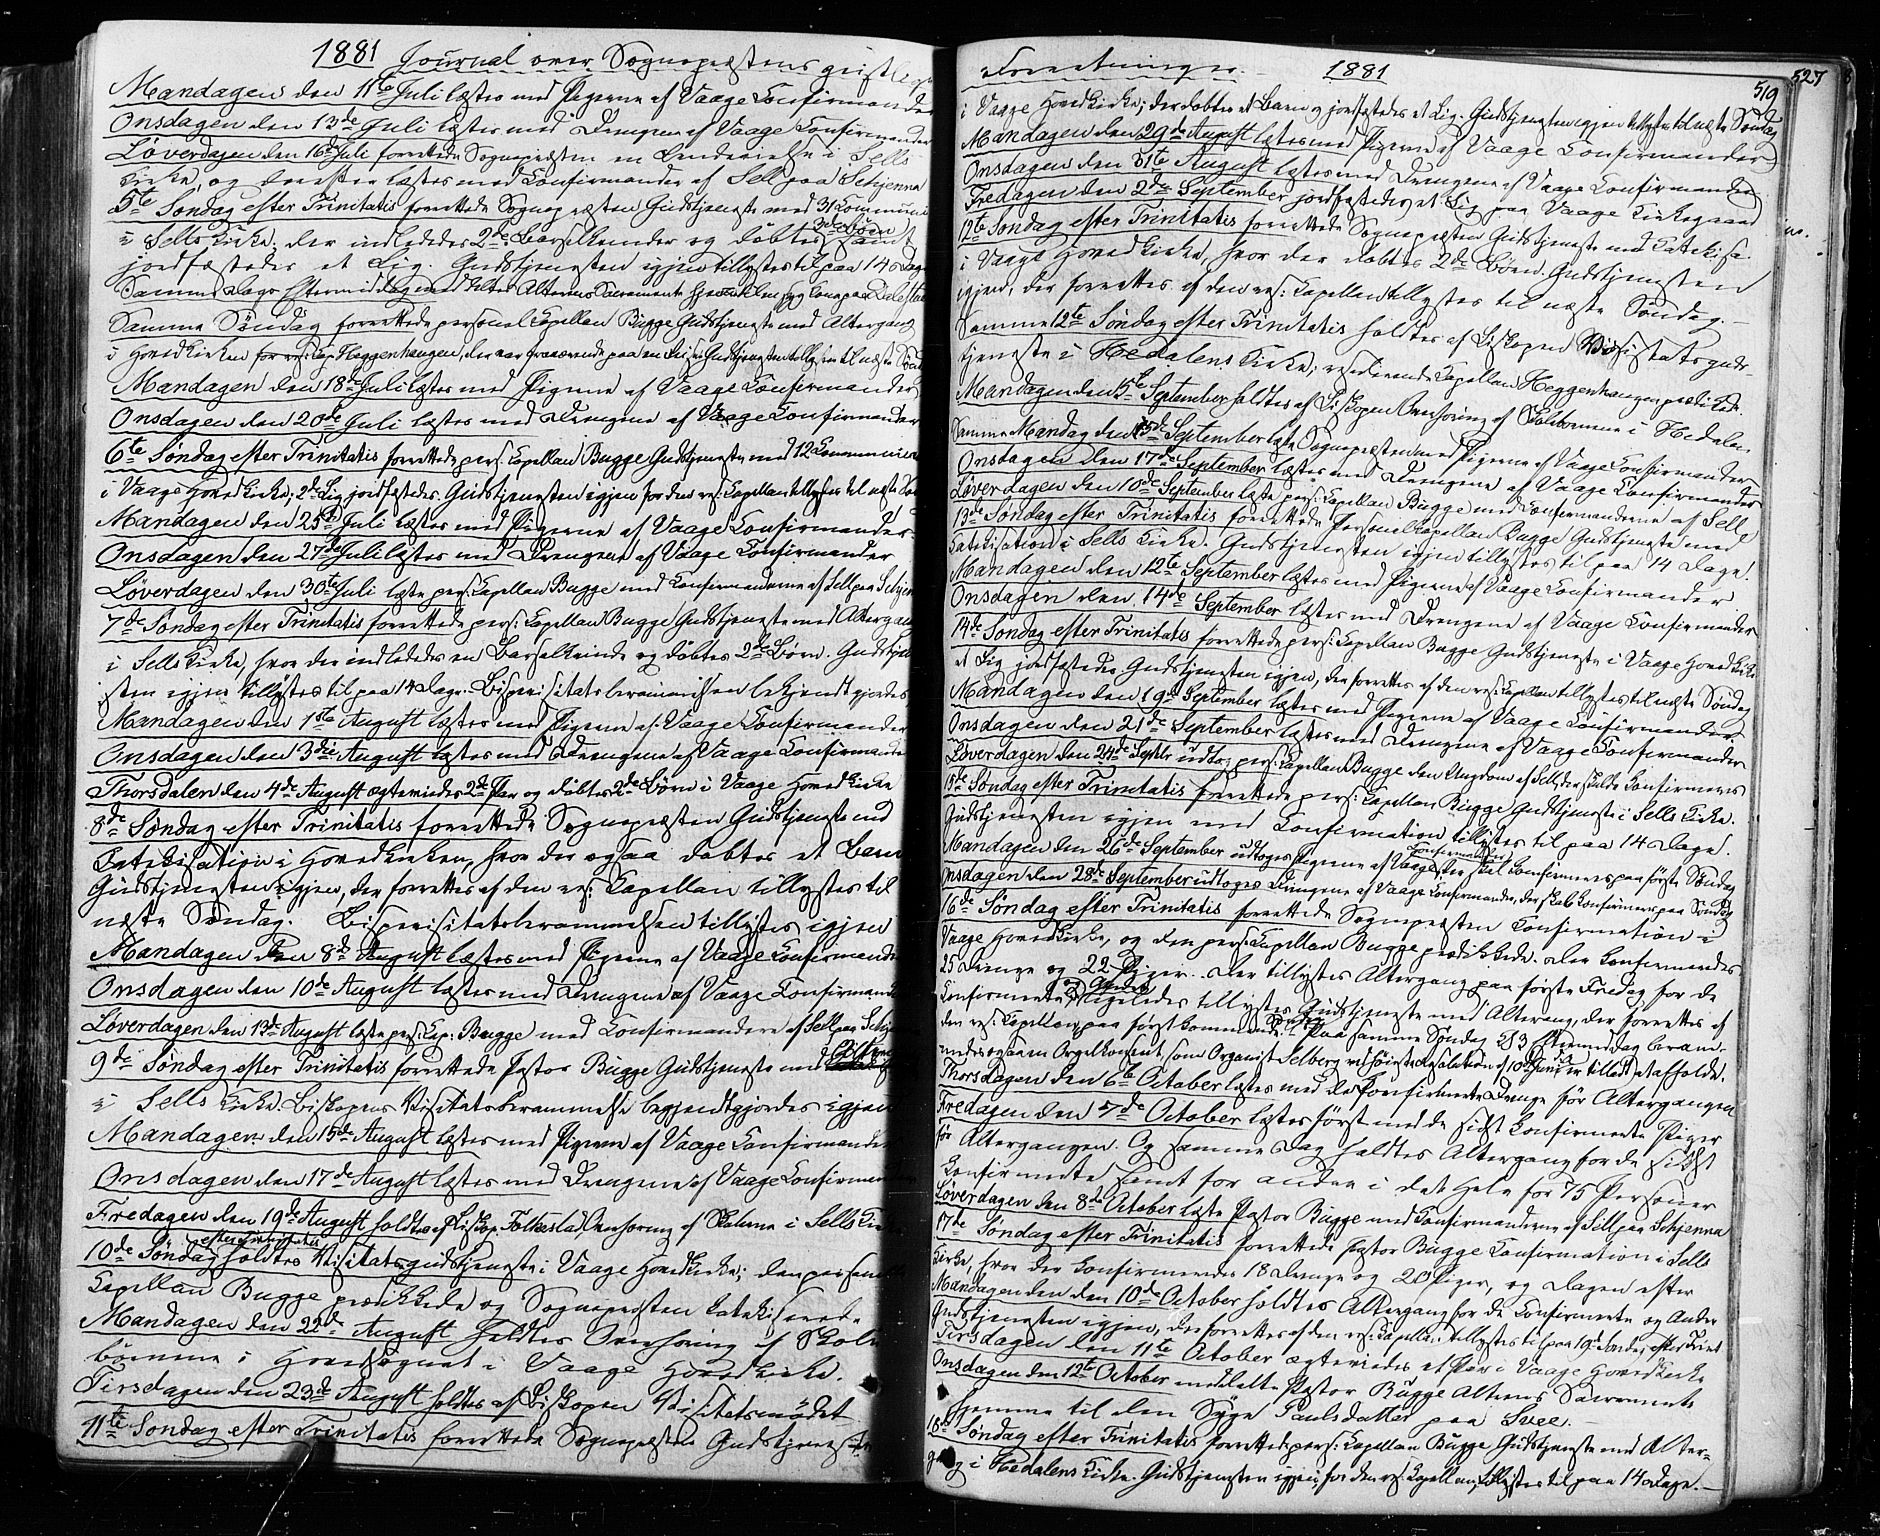 1881 Journal over Sognepræstens geistlige
Mandagen den 11te Juli læstes med Pigerne af Vaage Confirmander
Onsdagen den 13de Juli læstes med Drengene af Vaage Confirmander
Løverdagen den 16de Juli forrettede Sognepræsten en i Sells
Kirke, og derefter læstes med Confirmander af Sell paa Selsjenna
5te Søndag efter Trinitatis forrettede Sognepræsten Gudstjeneste med 31 Communi
i Sells Kirke; der indledes 2de Barselkvinder og døbtes 2de Børn samt
jordfæstedes et Lig. Gudstjenesten igjen tillystes til paa 14 Dage
Samme Dags Eftermiddag meddeltes Alterens Sacramente
Samme Søndag forrettede personel Capellan Bugge Gudstjeneste med Altergang
i Hovedkirken for res: Cap: Heggenhaugen, der var fraværende paa en Reise. Gudstjenesten tillystes til næste Sønd
Mandagen den 18de Juli læstes med Pigerne af Vaage Confirmander
Onsdagen den 20de Juli læstes med Drengene af Vaage Confirmander
6te Søndag efter Trinitatis forrettede pers: Capellan Bugge Gudstjeneste med 12 Communican
i Vaage Hovedkirke; 2de Lig jordfæstedes. Gudstjenesten igjen for den res: Capellan tillystes til næste Søn
Mandagen den 25de Juli læstes med Pigerne af Vaage Confirmander
Onsdagen den 27de Juli læstes med Drengene af Vaage Confirmander
Løverdagen den 30te Juli læste pers: Capellan Bugge med Confirmanderne af Sell paa Selsjen
7de Søndag efter Trinitatis forrettede pers: Capellan Bugge Gudstjeneste med Altergan
i Sells Kirke, hvor der indledes en Barselkvinde og døbtes 2de Børn. Gudstje
sten igjen tillystes til paa 14 Dage. Bispevisitatsberammelsen bekjendtgjordes
Mandagen den 1ste August læstes med Pigerne af Vaage Confirmander
Onsdagen den 3die August læstes med Drengene af Vaage Confirmande
Thorsdalen den 4de August ægteviedes 2de Par og døbtes 2de Børn i Vaage Hovedkirke
8de Søndag efter Trinitatis forrettede Sognepræsten Gudstjeneste med
Catekisation i Hovedkirken, hvor der ogsaa døbtes et Barn
Gudstjenesten igjen, der forrettes af den res: Capellan tillystes til
næste Søndag. Bispevisitatsberammelsen tillystes igjen
Mandagen den 8de August læstes med Pigerne af Vaage Confirmande
Onsdagen den 10de August læstes med Drengene af Vaage Confirmand
Løverdagen den 13de August læste pers: Cap: Bugge med Confirmandere af Sell paa Selsje
9de Søndag efter Trinitatis forrettede Pastor Bugge Gudstjeneste med
i Sells Kirke. Biskopens Visitatsberammelse begjendtgjordes igjen
Mandagen den 15de August læstes med Pigerne af Vaage Confirmander
Onsdagen den 17de August læstes med Drengene af Vaage Confirman
Fredagen den 19de August holdtes af Biskop Folkestad Overhøring af Skolerne i Sells Kir
10de Søndag efter Trinitatis holdtes Visitatsgudstjeneste i Vaage Hovedkirke; den personelle
Capellan Bugge prædikkede og Sognepræsten katekiserede
Mandagen den 22de August holdtes Overhøring af Skole
børnene i Hovedsognet i Vaage Hovedkirke.
Tirsdagen den 23de August holdtes af Biskopen Visitatsmødet
11te Søndag efter Trinitatis forrettede Sognepræsten Gudstjeneste
Forretninger. 1881
519
527
i Vaage Hovedkirke; der døbtes et Barn og jordfæstedes et Lig. Gudstjenesten igjen tillystes til næste Søndag
Mandagen den 29de August læstes med Pigerne af Vaage Confirmander
Onsdagen den 31te August læstes med Drengene af Vaage Confirmander
Fredagen den 2den September jordfæstedes et Lig paa Vaage Kirkegaard
12te Søndag efter Trinitatis forrettede Sognepræsten Gudstjeneste med Catekisa.
i Vaage Hovedkirke, hvor der døbtes 2de Børn. Gudstjenesten
igjen, der forrettes af den res: Capellan tillystes til næste Søndag.
Samme 12te Søndag efter Trinitatis holdtes af Biskopen Visitatsguds-
tjeneste i Hedalens Kirke; residerende Capellan Heggenhaugen prædikede.
Mandagen den 5te September holdtes af Biskopen Overhøring af Skolebørnene i Hedalen
Samme Mandag den 5de September læste Sognepræsten med Pigerne af Vaage Confirmander
Onsdagen den 7de September læstes med Drengene af Vaage Confirmander
Løverdagen den 10de September læste pers: Capellan Bugge med Confirmanderne af Sell
13de Søndag efter Trinitatis forrettede Personelcapellan Bugge Gudstjeneste med
Catekisation i Sells Kirke. Gudstjenesten igjen tillystes til paa 14 Dage.
Mandagen den 12te September læstes med Pigerne af Vaage Confirmander
Onsdagen den 14de September læstes med Drengene af Vaage Confirmander
14de Søndag efter Trinitatis forrettede pers: Capellan Bugge Gudstjeneste i Vaage Hovedkirke
et Lig jordfæstedes. Gudstjenesten igjen, der forrettes af den res: Capellan tillystes til næste Søndag
Mandagen den 19de September læstes med Pigerne af Vaage Confirmander
Onsdagen den 21de September læstes med Drengene af Vaage Confirmander
Løverdagen den 24de Septbr udtog pers: Capellan Bugge den Ungdom af Sell, der skulde Confirmeres
15de Søndag efter Trinitatis forrettede pers: Capellan Bugge Gudstjeneste i Sells Kirke.
Gudstjenesten igjen med Confirmation tillystes til paa 14 Dage.
Mandagen den 26de September udtoges Pigerne af Vaage Confirmander, der skal Confirmeres paa første Søndag
Onsdagen den 28de September udtoges Drengene af Vaage Confirmander, der skal Confirmeres paa Søndag
16de Søndag efter Trinitatis forrettede Sognepræsten Confirmation i
Vaage Hovedkirke, og den pers: Capellan Bugge prædikkede. Der Confirmeredes
25 Drenge og 22 Piger. Der tillystes Altergang paa første Fredag for de
Confirmerte og Andre. Ligeledes tillystes Gudstjeneste med Altergang, der forrettes af
den res: Capellan paa førstkommende Søndag. Paa samme Søndag Kl 3 Eftermiddag beram-
medes ogsaa en Orgelkonsert, som Organist Selberg ved høieste Resolution af 10de Juni er tilladt at afholde.
Thorsdagen den 6te October læstes med de Confirmerte Drenge før Altergangen
Fredagen den 7de October læstes først med de sidst Confirmerte Piger
før Altergangen. Og samme Dag holdtes Altergang for de sidst
Confirmerte, samt for andre i det Hele for 75 Personer
Løverdagen den 8de October læste Pastor Bugge med Confirmanderne af Sell paa Selsjenna
17de Søndag efter Trinitatis forrettede Pastor Bugge Confirmation i Sells
Kirke, hvor der Confirmeredes 18 Drenge og 20 Piger, og Dagen efter
Mandagen den 10de October holdtes Altergang for de Confirmerte og Andre
Gudstjenesten igjen, der forrettes af den res: Capellan tillystes til paa 19de Søndag efter Trinit
Tirsdagen den 11te October ægteviedes et Par i Vaage Hovedkirke
Onsdagen den 12te October meddelte Pastor Bugge Alterens Sacramente
hjemme til den Syge Paulsdatter paa Svee.
18de Søndag efter Trinitatis forrettede pers: Capellan Bugge Gudstjeneste med Alter-
gang i Hedalens Kirke. Gudstjenesten igjen, for den res: Capellan, tillystes til paa 14 Dage.